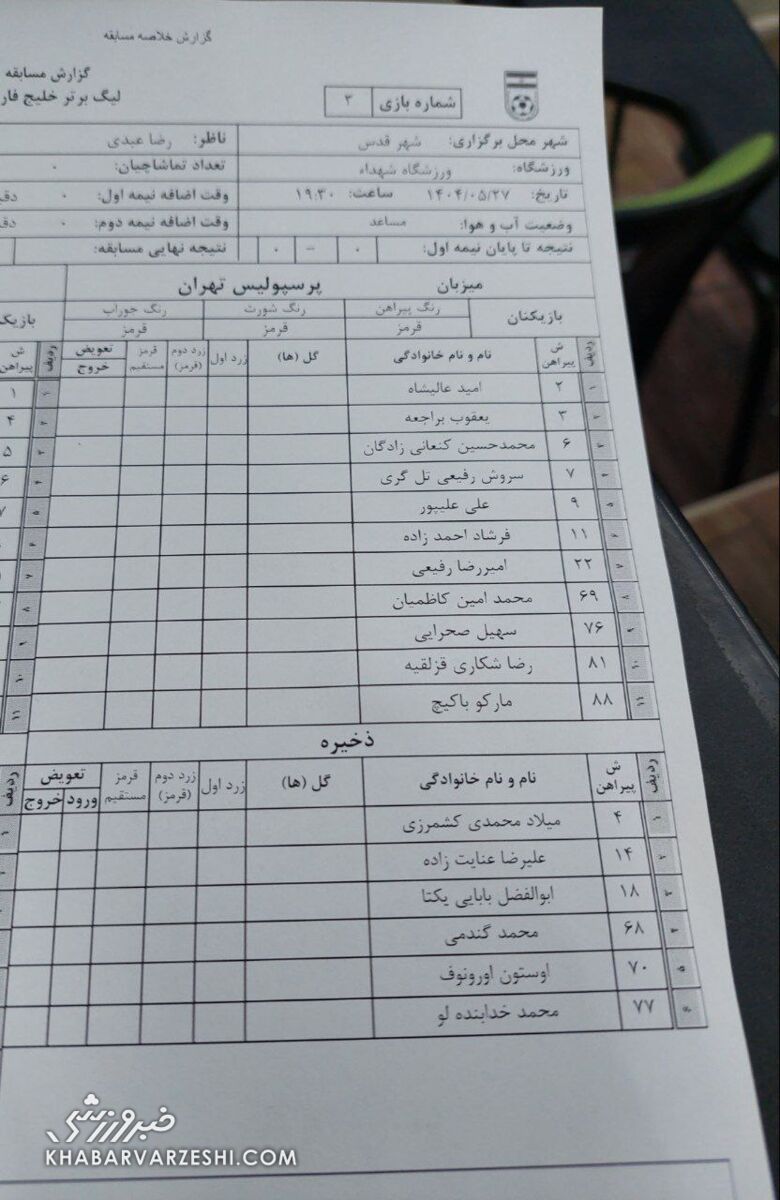 گزارش خلاصه مسابقه
گزارش مسابقه
لیگ برتر خلیج فار
شماره بازی ۳
شهر محل برگزاری: شهر قدس ناظر: رضا عبدی
ورزشگاه: ورزشگاه شهداء تعداد تماشاچیان: ۰
تاریخ: ۱۴۰۴/۰۵/۲۷ ساعت: ۱۹:۳۰ وقت اضافه نیمه اول: ۰ دق
وضعیت آب و هوا: مساعد وقت اضافه نیمه دوم: ۰ دق
نتیجه تا پایان نیمه اول: ۰ – ۰ نتیجه نهایی مسابقه:
میزبان پرسپولیس تهران
بازیکنان رنگ پیراهن رنگ شورت رنگ جوراب بازیک
قرمز قرمز قرمز
ردیف ش پیراهن نام و نام خانوادگی گل (ها) زرد اول زرد دوم (قرمز) قرمز مستقیم تعویض خروج ردیف ش پیراهن
۱ ۲ امید عالیشاه ۱ ۱
۲ ۳ یعقوب براجعه ۲ ۴
۳ ۶ محمدحسین کنعانی زادگان ۳ ۵
۴ ۷ سروش رفیعی تل گری ۴ ۶
۵ ۹ علی علیپور ۵ ۷
۶ ۱۱ فرشاد احمد زاده ۶
۷ ۲۲ امیررضا رفیعی ۷
۸ ۶۹ محمد امین کاظمیان ۸
۹ ۷۶ سهیل صحرایی ۹
۱۰ ۸۱ رضا شکاری قزلقیه ۱۰
۱۱ ۸۸ مارکو باکیچ ۱۱
ذخیره
ردیف ش پیراهن نام و نام خانوادگی گل (ها) زرد اول زرد دوم (قرمز) قرمز مستقیم تعویض ورود خروج ردیف
۱ ۴ میلاد محمدی کشمرزی ۱
۲ ۱۴ علیرضا عنایت زاده
۳ ۱۸ ابوالفضل بابایی یکتا
۴ ۶۸ محمد گندمی
۵ ۷۰ اوستون اورونوف
۶ ۷۷ محمد خدابنده لو
خبرورزشی
KHABARVARZESHI.COM